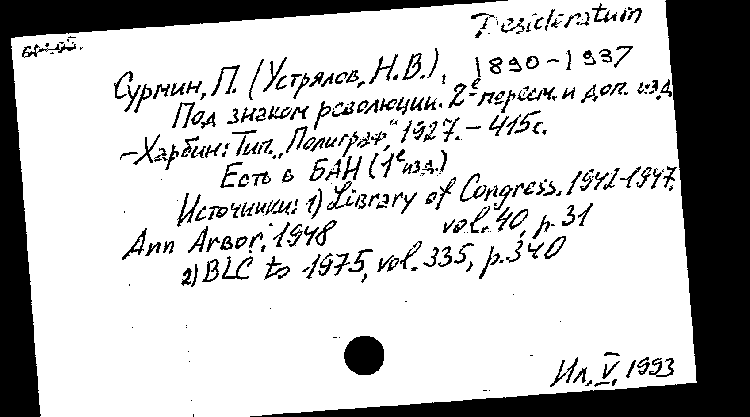 Desideratum
Сурмин, П. (Устрялов, Н.В.), 1890-1937
Под знаком революции. 2е пересм. и доп. изд.
-Харбин: Тип. "Полиграф", 1927. - 415с.
Есть в БАН (1е изд.)
Источники: 1) Library of Congress, 1942-1947,
Ann Arbor, 1948 vol. 40, p. 31
2) BLC to 1975, vol. 335, p. 340
Ил. V. 1993